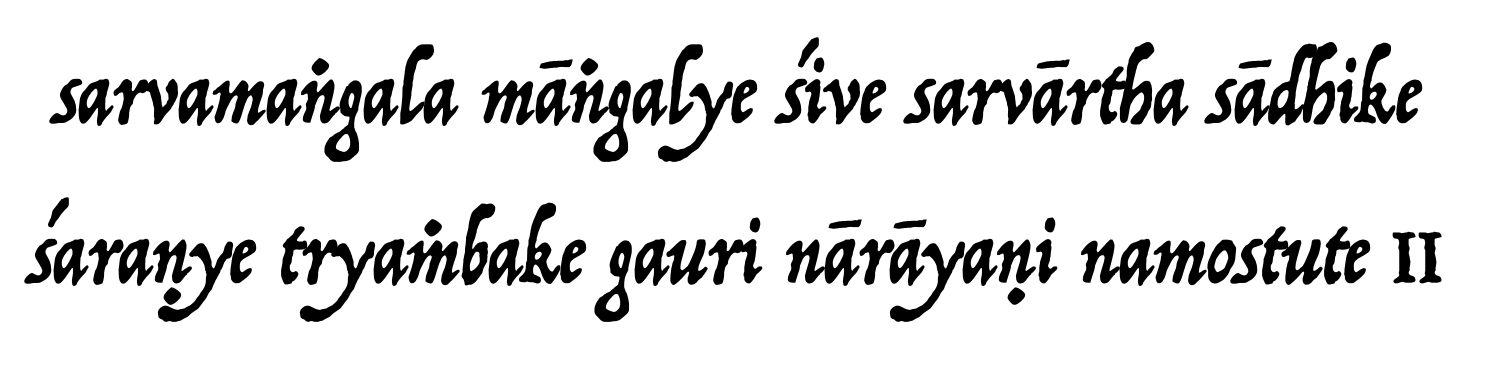 sarvamaṅgala māṅgalye śive sarvārtha sādhike
śaraṇye tryaṁbake gauri nārāyaṇi namostute II